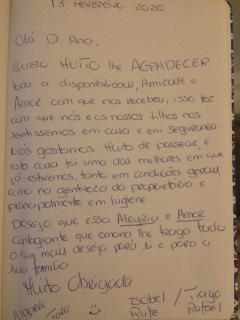 13 FEVEREIRO 2020
Olá D Ana,
Quero MUITO lhe AGRADECER
toda a disponibilidade, Amizade e
Amor com que nos recebeu, isso fez
com que nós e os nossos filhos nos
sentissemos em casa e em segurança
Nós gostamos Muito de passear, e
esta casa foi uma das melhores em que
já estivemos, tanto em condições gerais,
como na gentileza do proprietário e
principalmente em higiene
Desejo que essa Alegria e Amor
contagiante que emana lhe traga tudo
o que mais desejo para si e para a
sua família.
Muito Obrigada
Isabel / Tiago
Rute Rafael